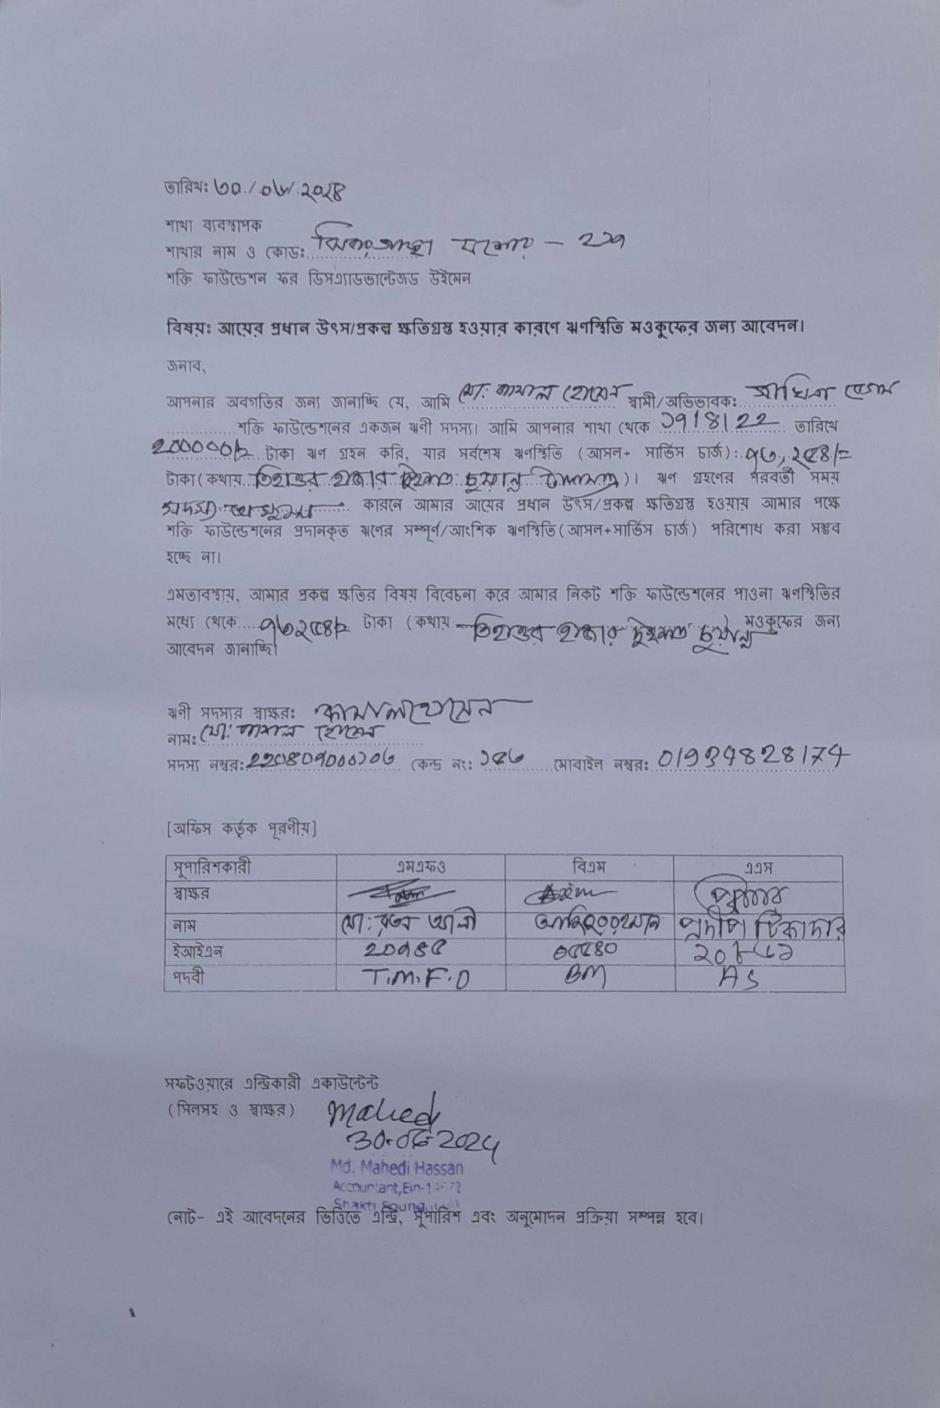 তারিখঃ ৩০/০৬/২০২৪
শাখা ব্যবস্থাপক
শাখার নাম ও কোড: ঝিকরগাছা যশোর -
শক্তি ফাউন্ডেশন ফর ডিসএ্যাডভান্টেজড উইমেন
বিষয়ঃ আয়ের প্রধান উৎস/প্রকল্প ক্ষতিগ্রস্ত হওয়ার কারণে ঋণস্থিতি মওকুফের জন্য আবেদন।
জনাব,
আপনার অবগতির জন্য জানাচ্ছি যে, আমি মো: কামাল হোসেন স্বামী/অভিভাবক: বেগম
শক্তি ফাউন্ডেশনের একজন ঋণী সদস্য। আমি আপনার শাখা থেকে ১৭/৪/22 তারিখে
200000/= টাকা ঋণ গ্রহন করি, যার সর্বশেষ ঋণস্থিতি (আসল+ সার্ভিস চার্জ): ৭৩,২৫৪/=
টাকা(কথায় তিহাত্তর হাজার দুইশত চুয়ান্ন টাকা মাত্র)। ঋণ গ্রহণের পরবর্তী সময়
সদস্য অসুস্থ কারনে আমার আয়ের প্রধান উৎস/প্রকল্প ক্ষতিগ্রস্ত হওয়ায় আমার পক্ষে
শক্তি ফাউন্ডেশনের প্রদানকৃত ঋণের সম্পূর্ণ/আংশিক ঋণস্থিতি(আসল+সার্ভিস চার্জ) পরিশোধ করা সম্ভব
হচ্ছে না।
এমতাবস্থায়, আমার প্রকল্প ক্ষতির বিষয় বিবেচনা করে আমার নিকট শক্তি ফাউন্ডেশনের পাওনা ঋণস্থিতির
মধ্যে থেকে ৭৩২৫৪/= টাকা (কথায় তিহাত্তর হাজার দুইশত চুয়ান্ন মওকুফের জন্য
আবেদন জানাচ্ছি।
ঋণী সদস্যর স্বাক্ষর: কামাল হোসেন
নাম: মো: কামাল হোসেন
সদস্য নম্বর: 220809000১০৬ কেন্দ্র নং: ১৫৬ মোবাইল নম্বর: 01939828174
[অফিস কর্তৃক পূরণীয়]
সুপারিশকারী এমএফও বিএম এএস
স্বাক্ষর
নাম মো: রতন আলী প্রদীপ টিকাদার
ইআইএন 20955 05580 ২০৮৫১
পদবী T.M.F.O BM AS
সফটওয়ারে এন্ট্রিকারী একাউন্টেন্ট
(সিলসহ ও স্বাক্ষর) Mahedi
30-06-2024
Md. Mahedi Hassan
Accountant,Ein-
Shakti
নোট- এই আবেদনের ভিত্তিতে এন্ট্রি, সুপারিশ এবং অনুমোদন প্রক্রিয়া সম্পন্ন হবে।